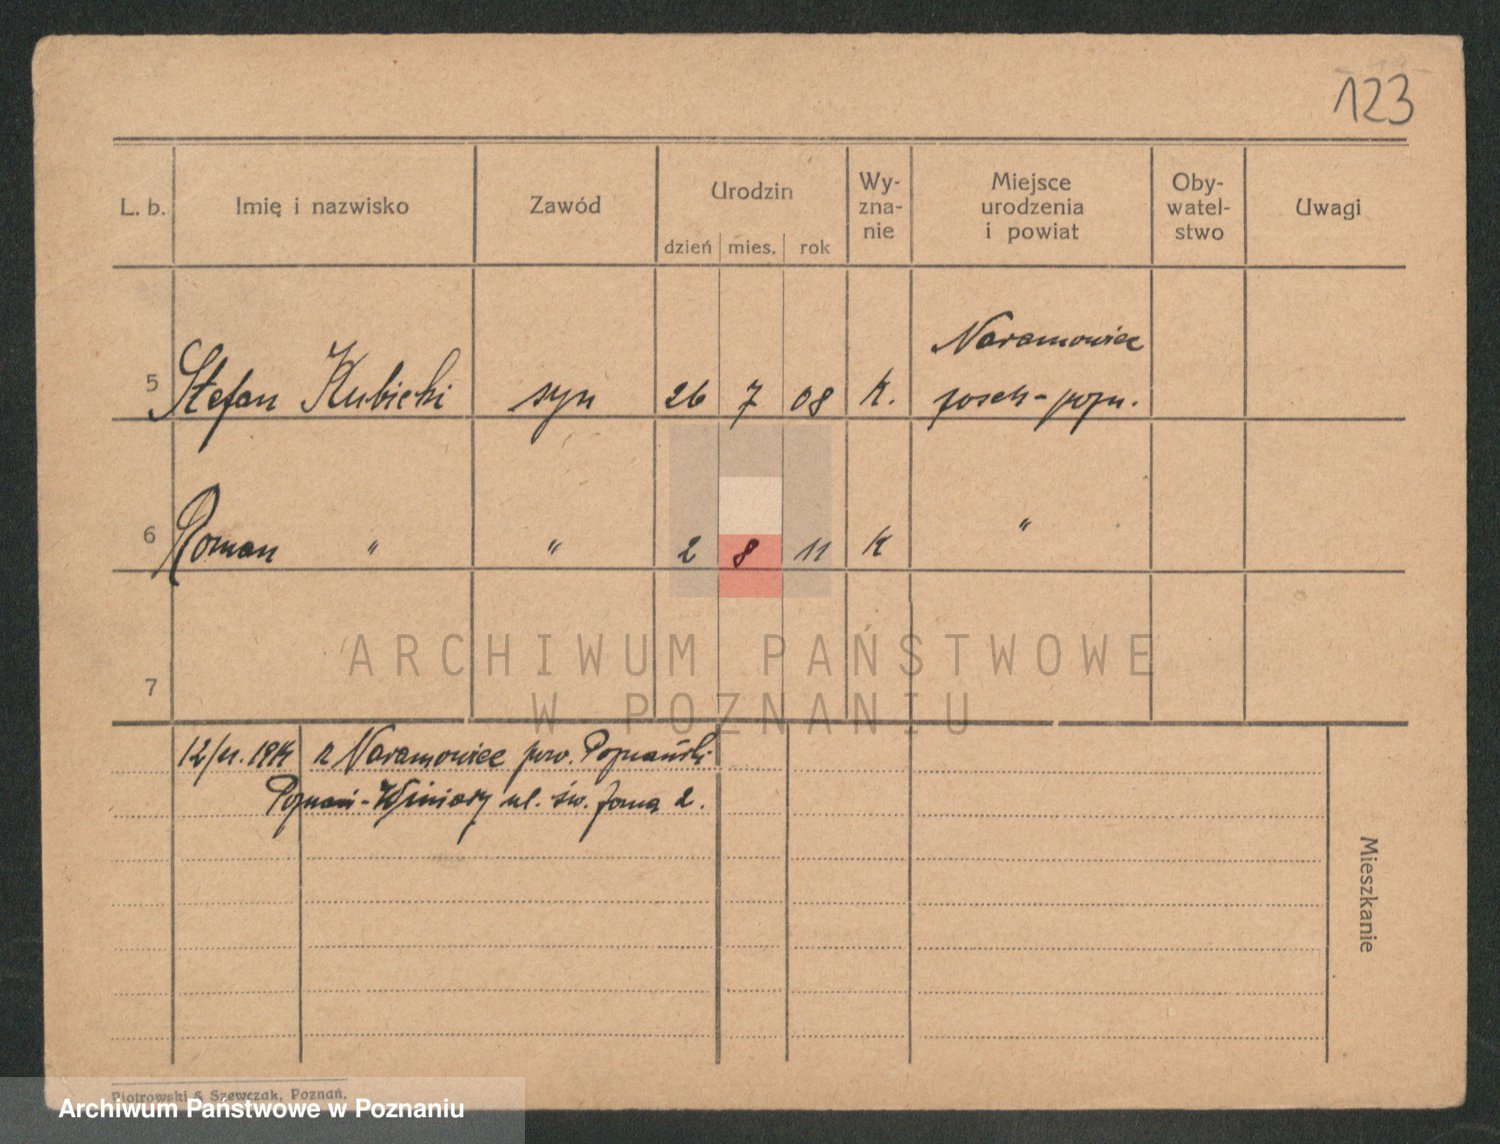 123
L. b. Imię i nazwisko Zawód Urodzin dzień mies. rok Wy-
zna-
nie Miejsce
urodzenia
i powiat Oby-
watel-
stwo Uwagi
Naramowice
5 Stefan Kubicki syn 26 7 08 k. pozn.
6 Roman " " 2 8 11 k "
7
ARCHIWUM PAŃSTWOWE
W POZNANIU
z Naramowice pow. Poznański
Poznań-Winiary ul. św. 2.
Mieszkanie
Piotrowski & Szewczak, Poznań.
Archiwum Państwowe w Poznaniu